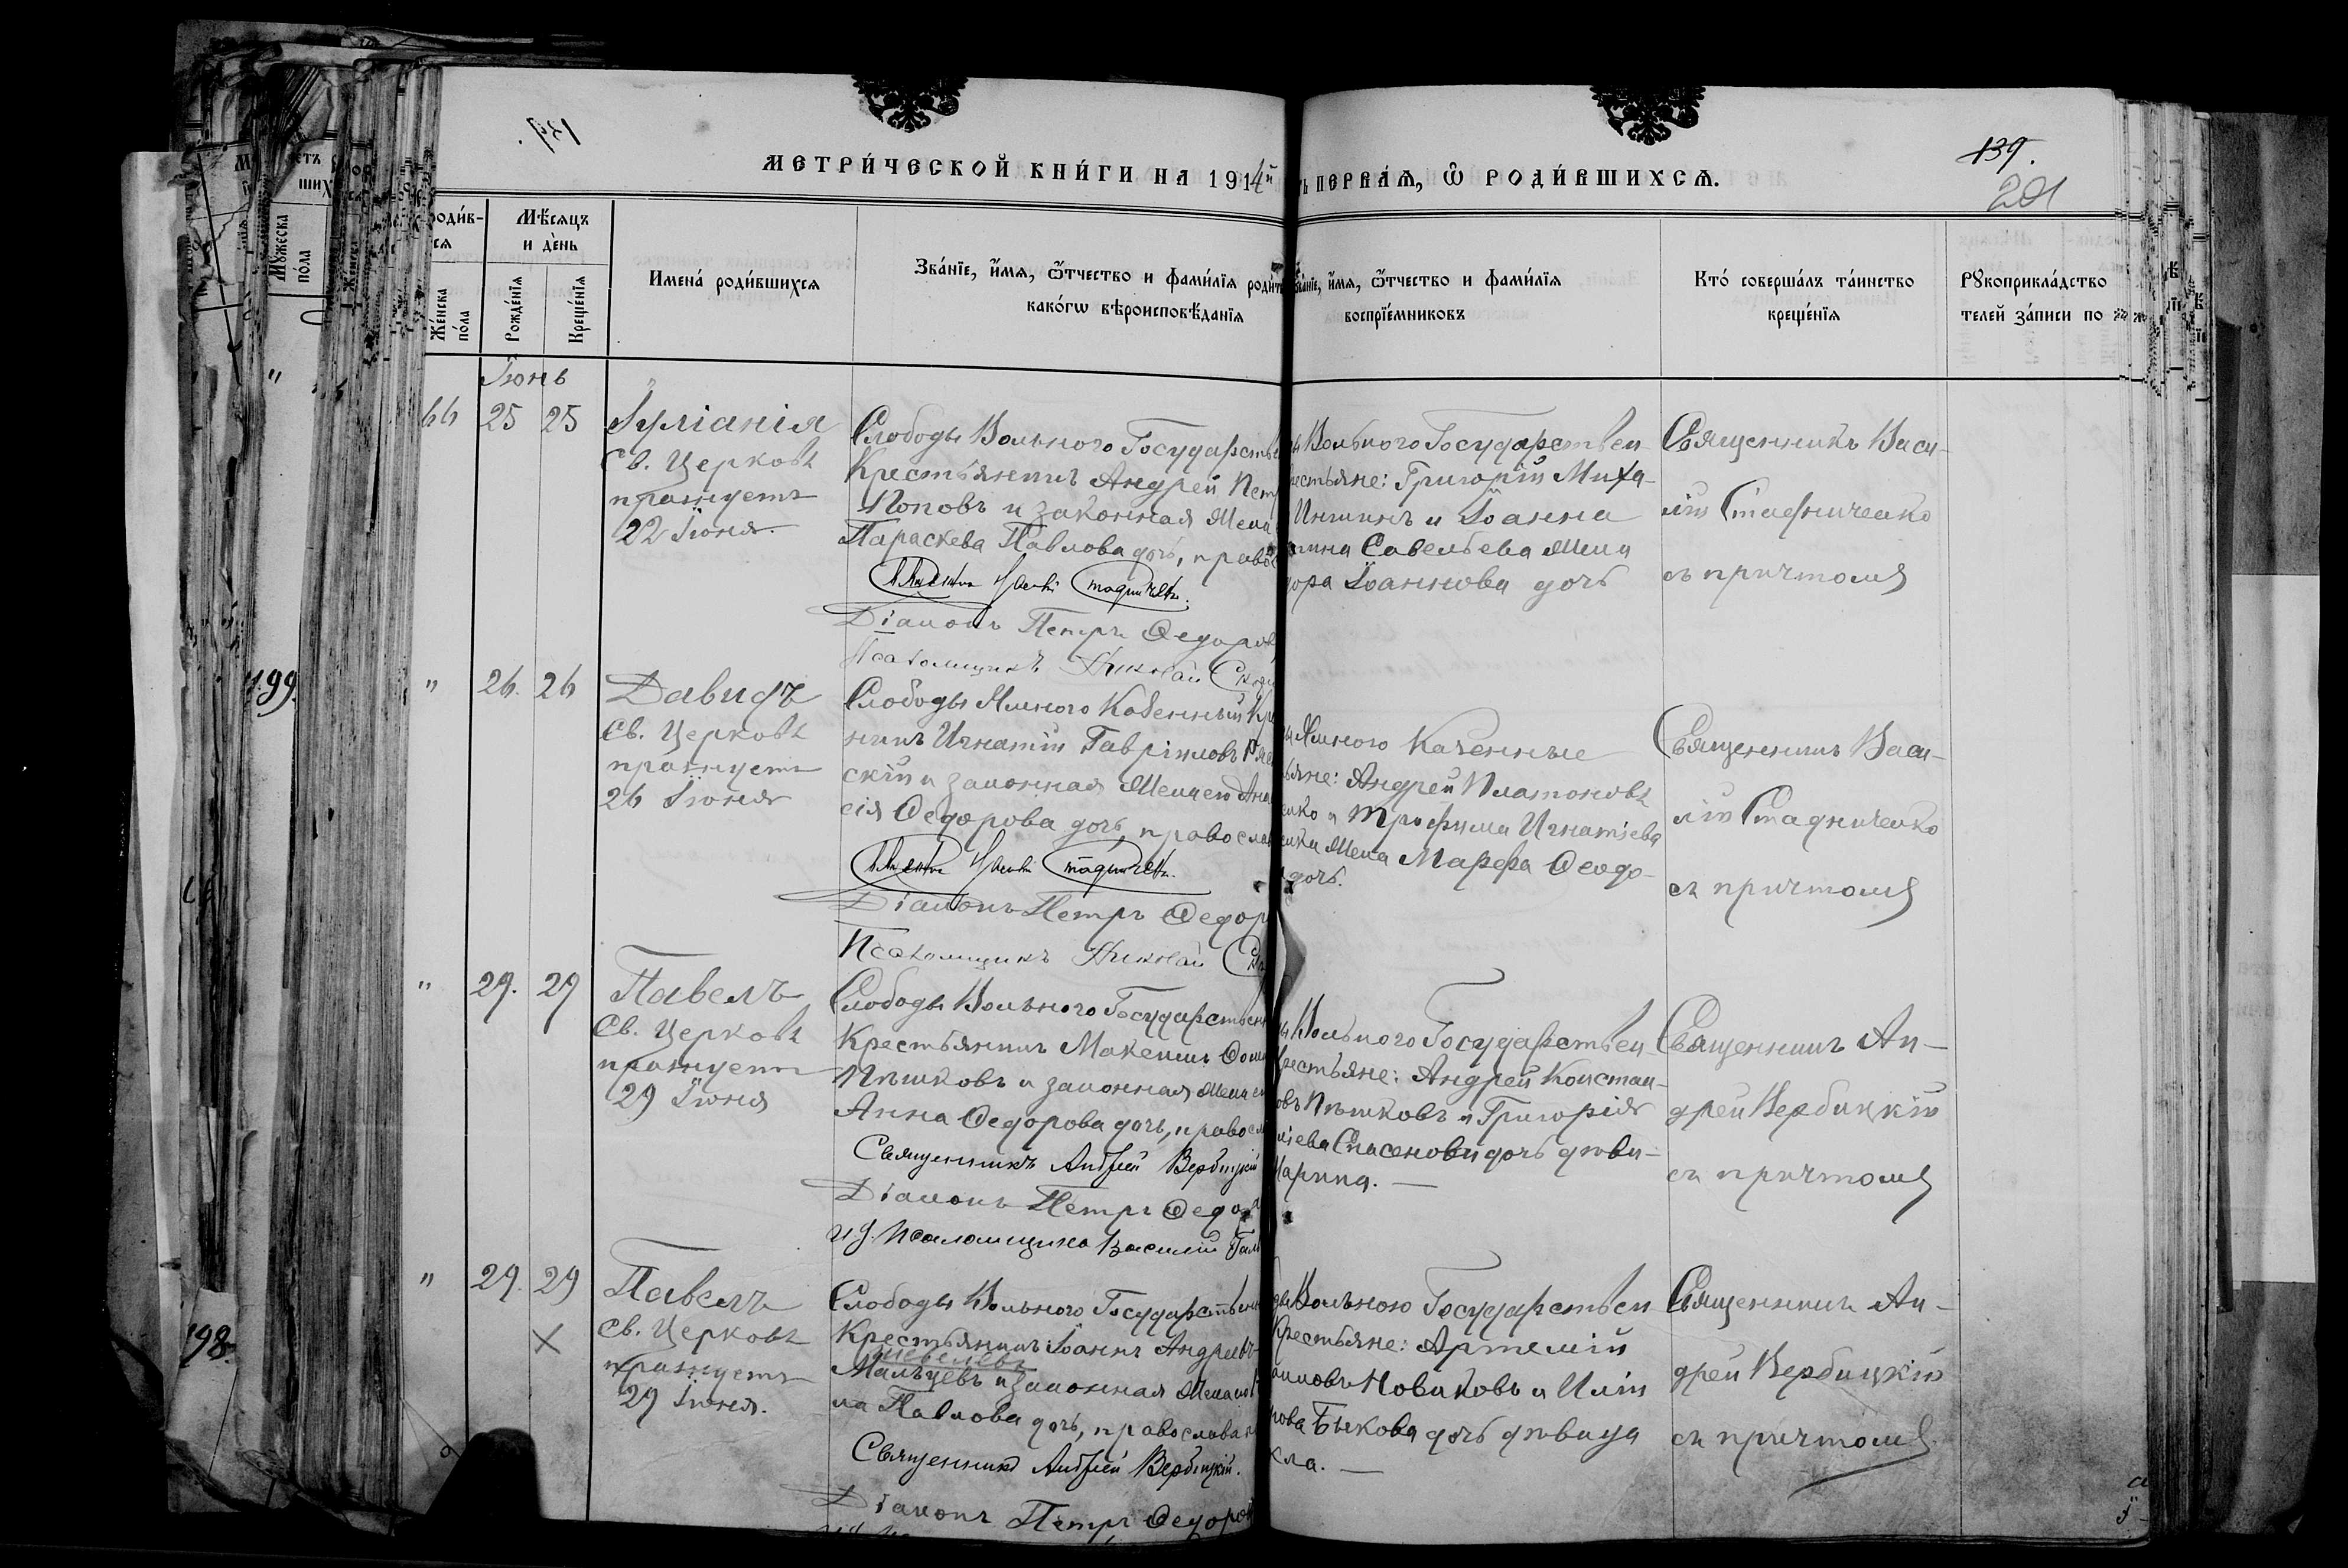 МЕТРИ́ЧЕСКОЙ КНИ́ГИ НА 1914й
ПЕРВАЯ, Ѽ РОДИ́ВШИХСЯ.
139.
201
роди́в-
ся
Мѣсяцъ
и де́нь
Же́нска
по́ла
Рожде́нїя
Креще́нїя
Имена́ роди́вшихся
Зва́нїе, и҆́мя, ѻ҆́тчество и фами́лїя роди́т
како́гѡ вѣроисповѣ́данїя
и҆́мя, ѻ҆́тчество и фами́лїя
воспрїе́мниковъ
Кто́ соверша́лъ та́инство
креще́нїя
Рꙋкоприкла́дство
телей за́писи по
Мꙋ́жеска
по́ла
Іюнь
66 25 25
Іуліанія
Св. Церковь
празнуетъ
22 Іюня.
Слободы Вольного Государствен
Крестьянинъ Андрей Пет
Поповъ и законная жена
Параскева Павлова дочь, правос
Діаконъ Петръ Федоров
Псаломщикъ Николай
Вольного Государствен-
рестьяне: Григорій Миха-
и Іоанна
Савельева жена
дора Іоаннова дочь
Священникъ Васи-
лій Стадниченко
съ причтомъ
199.
" 26. 26
Давидъ
Св. Церковь
празнуетъ
26 Іюня
Слободы Ямного Казенный Кр
нинъ Игнатій Гавріиловъ
скій и законная жена его Ана
сія Федорова дочь, православ
Діаконъ Петръ Федор
Псаломщикъ Николай
Ямного Казенные
тьяне: Андрей Платоновъ
енко и Трофима Игнатіева
енки жена Марфа Феодо-
дочь.
Священникъ Васи-
лій Стадниченко
съ причтомъ
" 29. 29
Павелъ
Св. Церковь
празнуетъ
29 Іюня
Слободы Вольного Государствен
Крестьянинъ Максимъ
Пѣшковъ и законная жена ег
Анна Федорова дочь, правосл
Священникъ Андрей Вербицкій
Діаконъ Петръ Федор
И. д. Псаломщика Василій
Вольного Государствен-
рестьяне: Андрей Констан-
овъ Пѣшковъ и Григорія
сіева Спасенова дочь дѣви-
Марина.
Священникъ Ан-
дрей Вербицкій
съ причтомъ
198.
" 29. 29
Павелъ
Св. Церковь
празнуетъ
29 Іюня.
Слободы Вольного Государствен
Крестьянинъ Іоаннъ Андреевъ
Мальцевъ и законная жена его
ла Павлова дочь, православн
Священникъ Андрей Вербицкій.
Діаконъ Петръ Федоров
Вольного Государствен
Крестьяне: Артемій
Новиковъ и Илій
рова Быкова дочь дѣвица
кла.
Священникъ Ан-
дрей Вербицкій
съ причтомъ